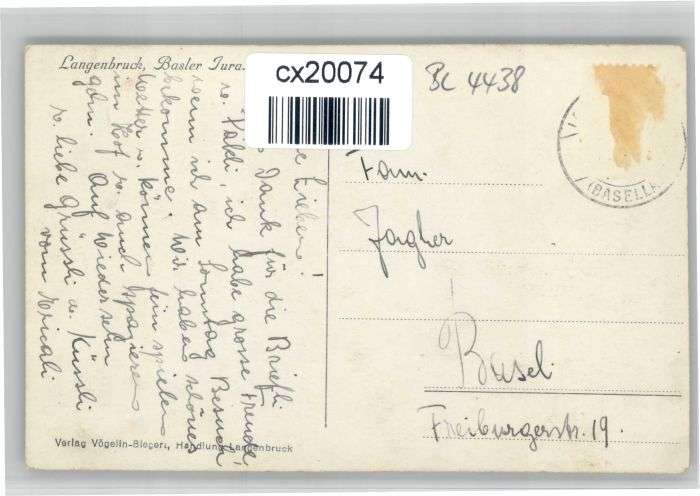 Langenbruck, Basler Jura.
cx20074
BL 4438
Lieben!
Dank für die Briefli
v. Valdi, ich habe grosse Freude,
wenn ich am Sonntag Besuch
bekomme. Wir haben schönes
Wetter u. können fein spielen
im Hof u. auch spazieren
gehn. Auf Wiedersehn
u. liebe Grüssli u. Küssli
vom
Fam.
Jagher
Basel.
Freiburgerstr. 19.
(BASELL
Verlag Vögelin-Bieger, Handlung Langenbruck